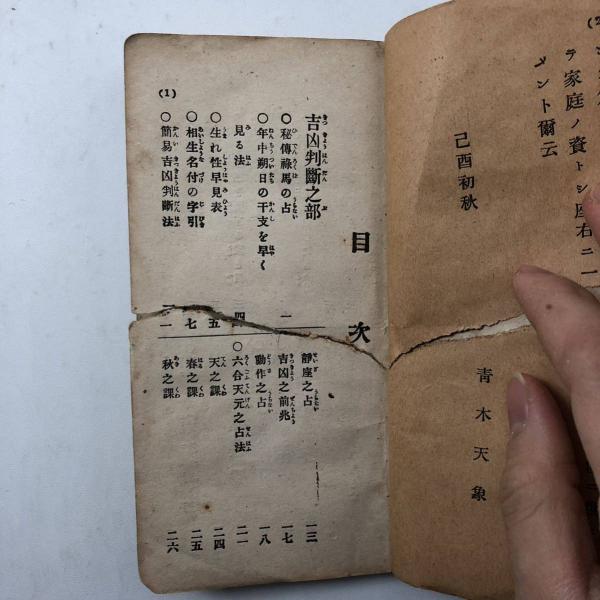 テ家庭ノ資トシ座右ニ一
メント爾云
己酉初秋
青木天象
目次
吉凶判斷之部
○秘傳祿馬の占 一
○年中朔日の干支を早く
見る法 四
○生れ性早見表 五
○相生名付の字引 七
○簡易吉凶判斷法
靜座之占 一三
吉凶之前兆 一七
動作之占 一八
○六合天元之占法 二一
天之課 二四
春之課 二五
秋之課 二六
(1)